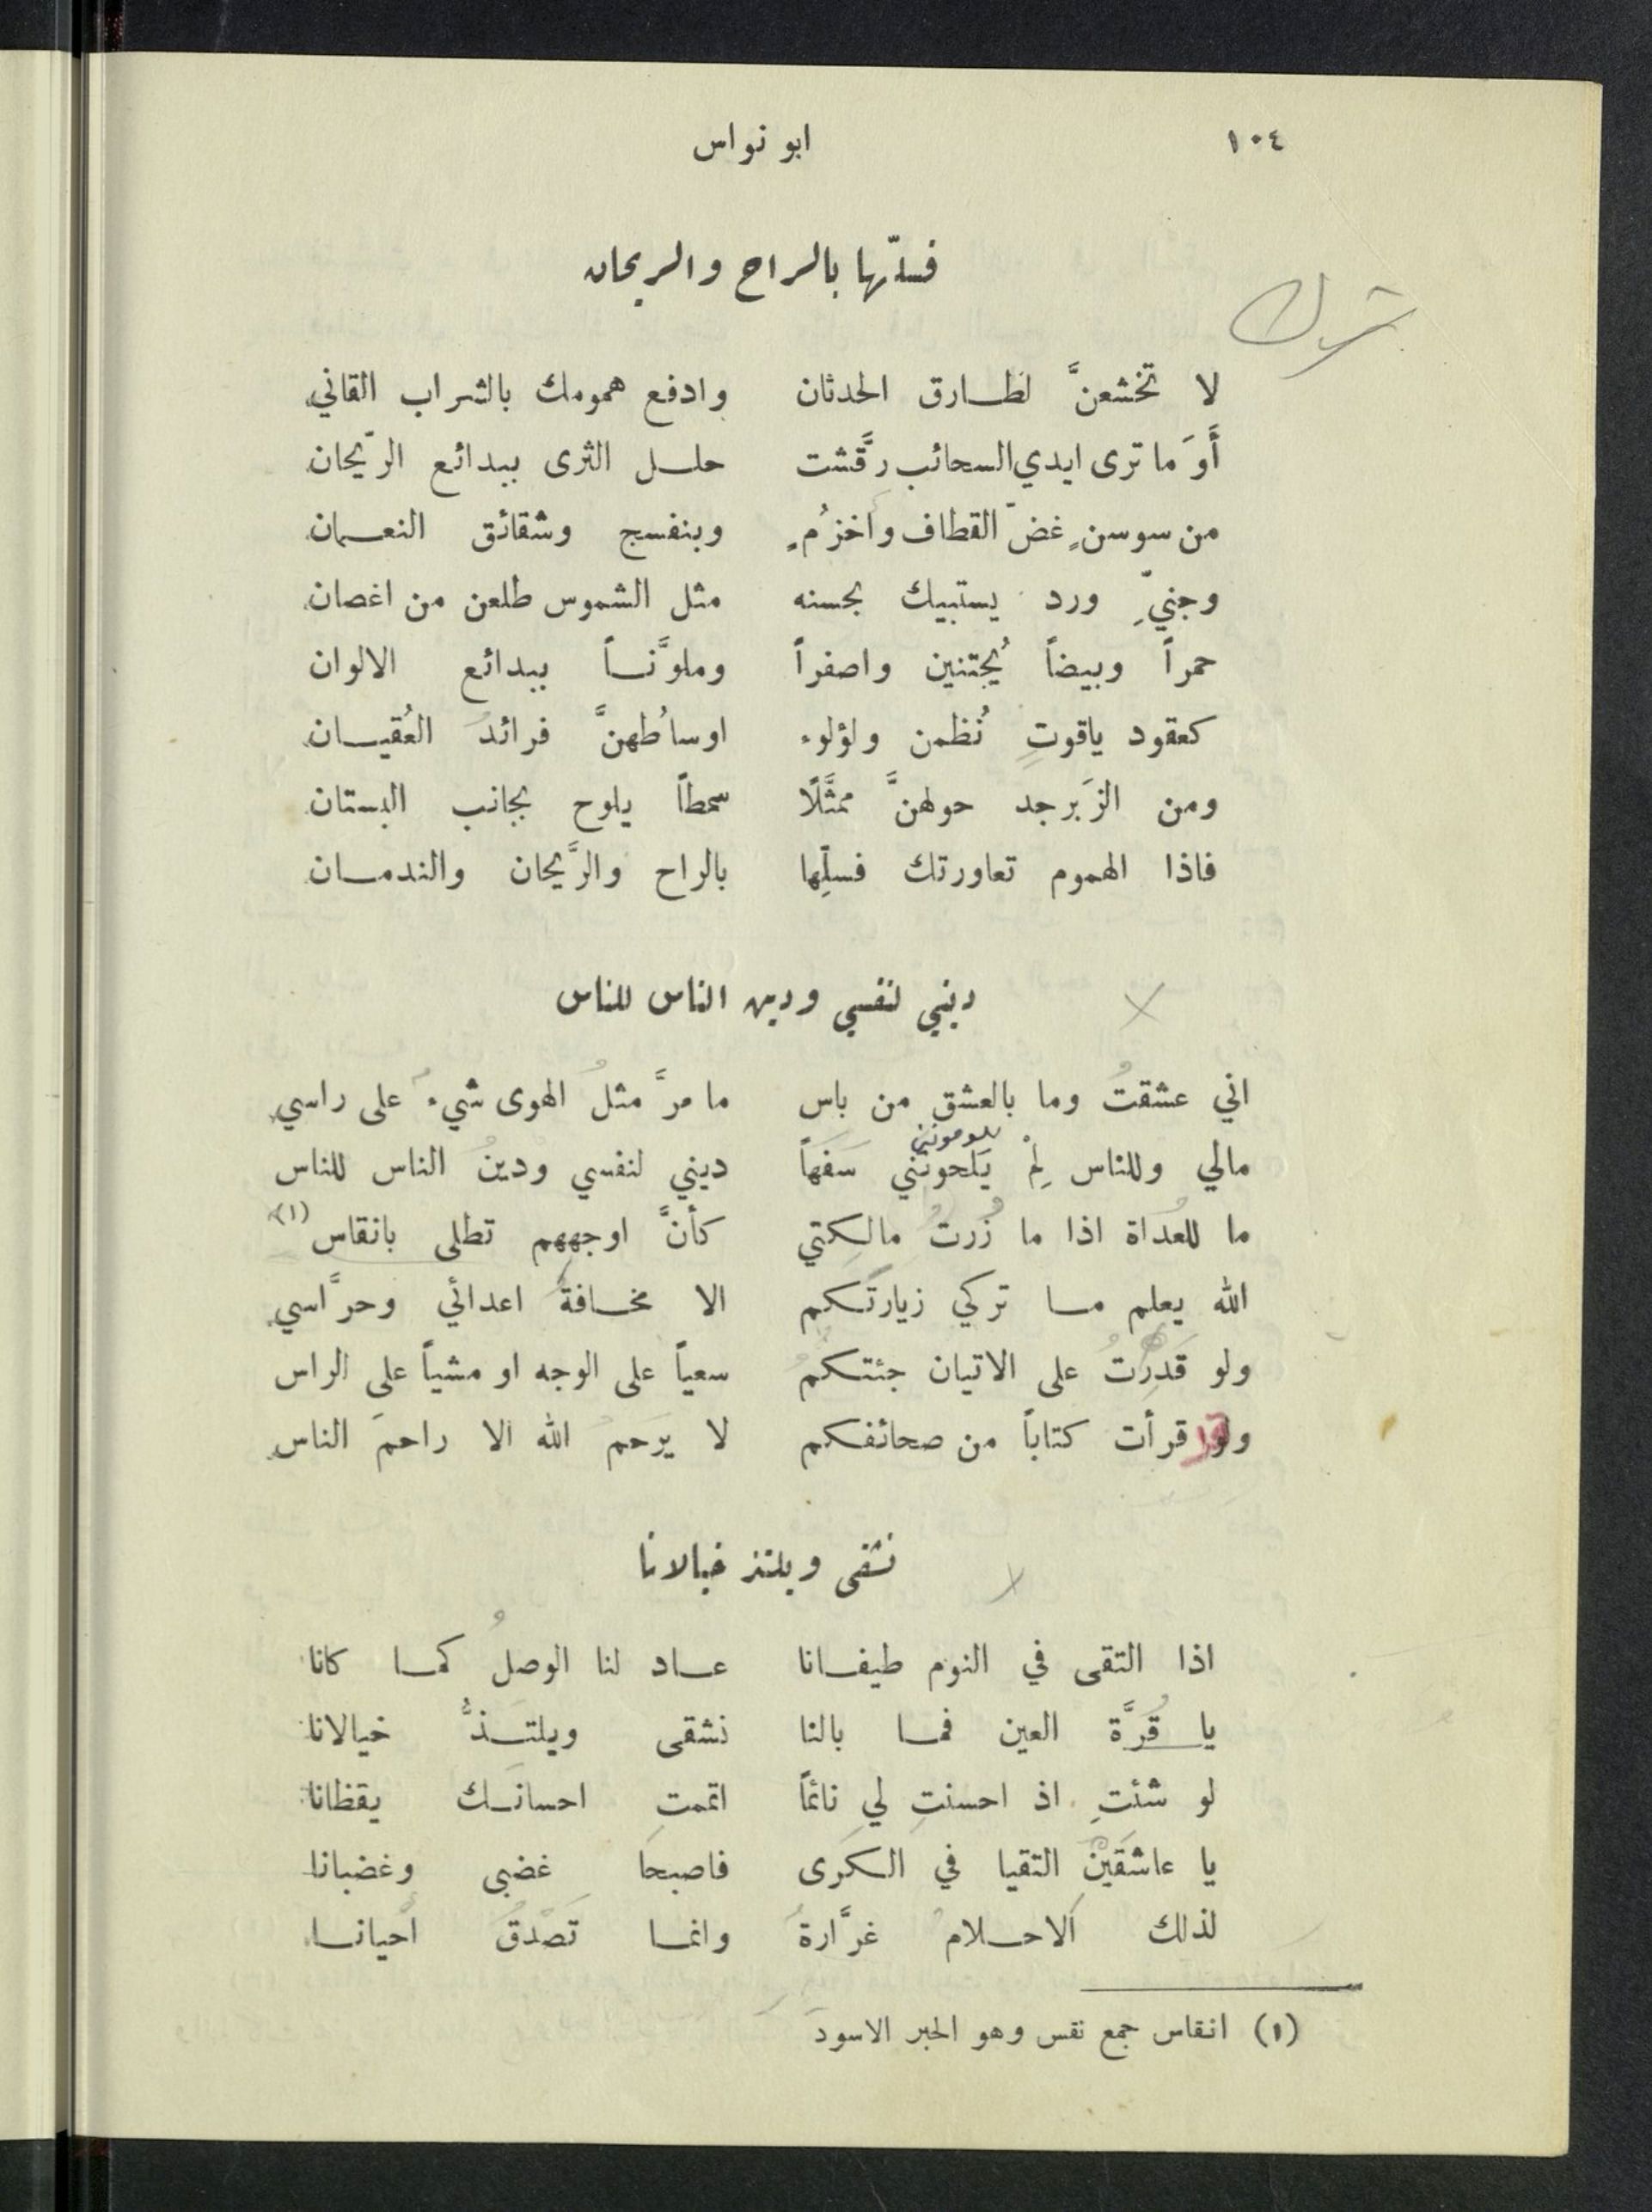 ١٠٤ ابو نواس
فسلّها بالراح والريحان
ترك
لا تخشعنَّ لطارق الحدثان وادفع همومك بالشراب القاني
أَوَ ما ترى ايدي السحائب رقَّشت حلل الثرى ببدائع الرّيحان
من سوسنٍ غضّ القطاف واخزُمٍ وبنفسج وشقائق النعمان
وجنيِّ ورد يستبيك بحسنه مثل الشموس طلعن من اغصان
حمراً وبيضاً يُجتنين واصفراً وملوَّناً ببدائع الالوان
كعقود ياقوتٍ نُظمن ولؤلوء اوساُطهنَّ فرائدُ العُقيان
ومن الزَبرجد حولهنَّ ممثَّلًا سمطاً يلوح بجانب البستان
فاذا الهموم تعاورتك فسلِّها بالراح والرَّيحان والندمان
ديني لنفسي ودين الناس للناس
اني عشقتُ وما بالعشق من باس ما مرَّ مثلُ الهوى شيءٌ على راسي
يلومونني
مالي وللناس لِمْ يَلحونَني سَفَهاً ديني لنفسي ودينُ الناس للناس
ما للعُداة اذا ما زُرتُ مالِكتي كأنَّ اوجههم تطلى بانقاس (١)
الله يعلم ما تركي زيارتَكم الا مخافةَ اعدائي وحرَّاسي
ولو قَدِرْتُ على الاتيان جئتكمُ سعياً على الوجه او مشياً على الراس
ولو قرأت كتاباً من صحائفكم لا يَرحمُ الله الا راحمَ الناس
نشقى ويلتذ خيالانا
اذا التقى في النوم طيفانا عاد لنا الوصلُ كما كانا
يا قُرَّة العين فما بالنا نشقى ويلتذُّ خيالانا
لو شئتِ اذ احسنتِ لي نائماً اتممت احسانَك يقظانا
يا عاشقَيْن التقيا في الكرَى فاصبحَا غضبى وغضبانا
لذلك اَلاحلامُ غرَّارةٌ وانما تَصْدُقُ احيانا
(١) انقاس جمع نقس وهو الحبر الاسود